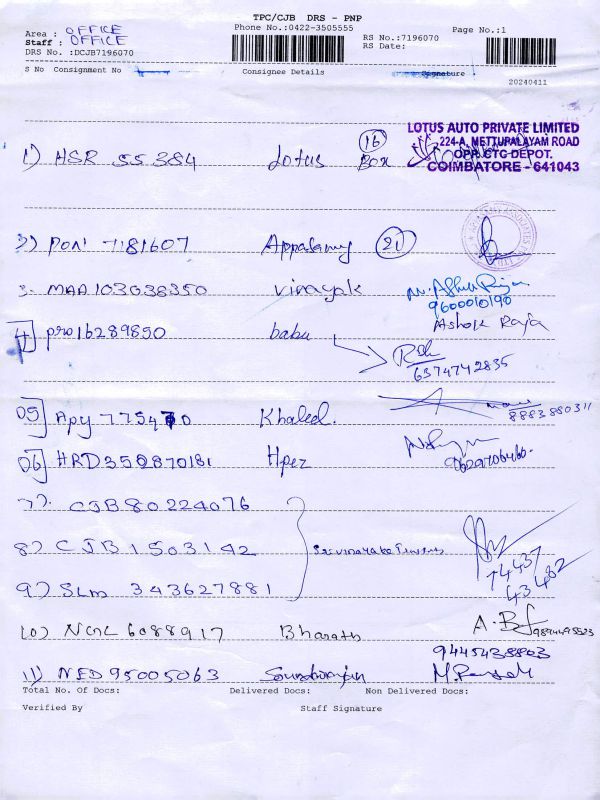 TPC/CJB DRS - PNP
Area : OFFICE Phone No.:0422-3505555 RS No.:7196070 Page No.:1
Staff : OFFICE RS Date:
DRS No. :DCJB7196070
S No Consignment No Consignee Details Signature
20240411
LOTUS AUTO PRIVATE LIMITED
224-A, METTUPALAYAM ROAD
OPP. CTC DEPOT.
COIMBATORE - 641043
1) HSR 55384 Lotus 16 Box
2) PON 7181607 Appasamy 21
3. MAA 103038350 vinayak
9600010190
Ashok Raja
4 pro16289850 babu
6374742835
05 Apy 775470 Khaleel.
8883880311
06 HRD350870181 Hpez
7). CJB 80224076
8) CJB 1503142
9) SLm 343627881
74437
43482
10) NCNL 6088917 Bharath A.B
9894495523
9445438803
11) NED 95005063
Total No. Of Docs: Delivered Docs: Non Delivered Docs:
Verified By Staff Signature